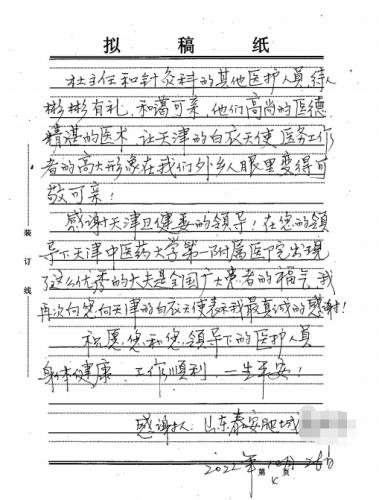 拟 稿 纸
杜主任和针灸科的其他医护人员,待人
彬彬有礼,和蔼可亲,他们高尚的医德
精湛的医术,让天津的白衣天使医务工作
者的高大形象在我们外乡人眼里变得可
敬可亲!
感谢天津卫健委的领导!在您的领
导下天津中医药大学第一附属医院出现
了这么优秀的大夫是全国广大患者的福气,我
再次向您向天津的白衣天使表示我最真诚的感谢!
祝愿,您和您领导下的医护人员
身体健康,工作顺利,一生平安!
感谢人:山东泰安肥城
2022年 月26日
第 页
装
订
线